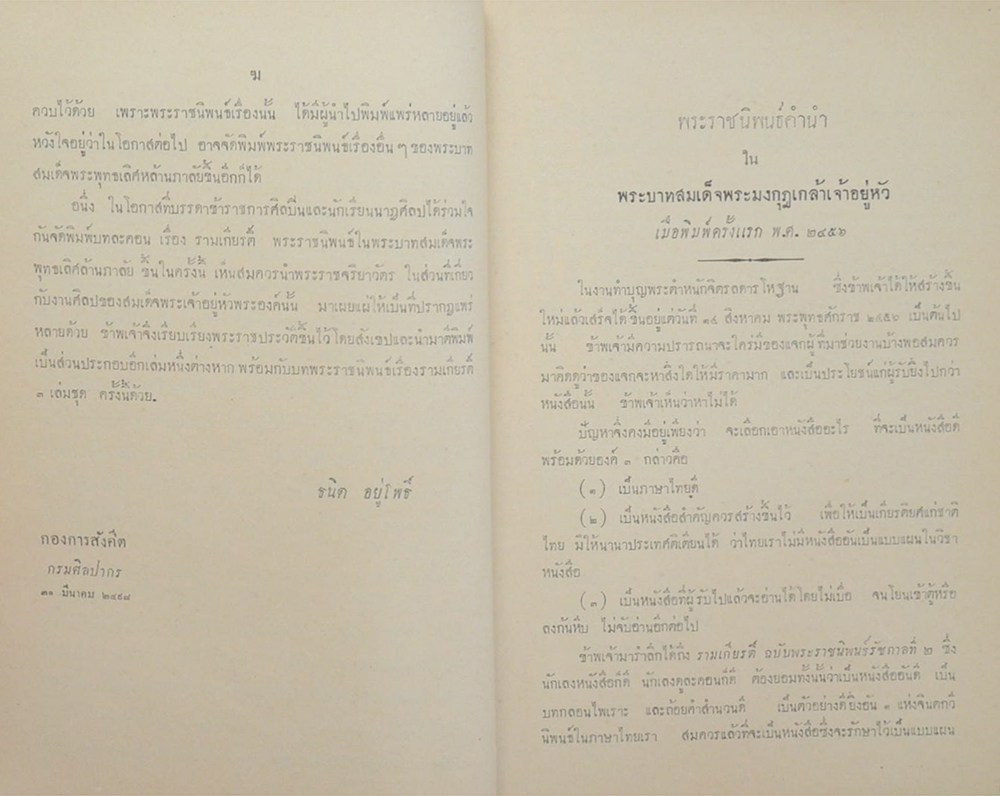 ฆ
ควบไว้ด้วย เพราะพระราชนิพนธ์เรื่องนั้น ได้มีผู้นำไปพิมพ์แพร่หลายอยู่แล้ว
หวังใจอยู่ว่าในโอกาสต่อไป อาจจัดพิมพ์พระราชนิพนธ์เรื่องอื่น ๆ ของพระบาท
สมเด็จพระพุทธเลิศหล้านภาลัยขึ้นอีกก็ได้
อนึ่ง ในโอกาสที่บรรดาข้าราชการศิลปินและนักเรียนนาฏศิลปได้ร่วมใจ
กันจัดพิมพ์บทละคอน เรื่อง รามเกียรติ์ พระราชนิพนธ์ในพระบาทสมเด็จพระ
พุทธเลิศล้านภาลัย ขึ้นในครั้งนี้ เห็นสมควรนำพระราชจริยาวัตร ในส่วนที่เกี่ยว
กับงานศิลปของสมเด็จพระเจ้าอยู่หัวพระองค์นั้น มาเผยแผ่ให้เป็นที่ปรากฏแพร่
หลายด้วย ข้าพเจ้าจึงเรียบเรียงพระราชประวัติขึ้นไว้โดยสังเขปและนำมาตีพิมพ์
เป็นส่วนประกอบอีกเล่มหนึ่งต่างหาก พร้อมกับบทพระราชนิพนธ์เรื่องรามเกียรติ์
๓ เล่มชุด ครั้งนี้ด้วย.
ธนิต อยู่โพธิ์
กองการสังคีต
กรมศิลปากร
๓๑ มีนาคม ๒๔๙๗
พระราชนิพนธ์คำนำ
ใน
พระบาทสมเด็จพระมงกุฎเกล้าเจ้าอยู่หัว
เมื่อพิมพ์ครั้งแรก พ.ศ. ๒๔๕๖
ในงานทำบุญพระตำหนักจิตรลดารโหฐาน ซึ่งข้าพเจ้าได้ให้สร้างขึ้น
ใหม่แล้วเสร็จได้ขึ้นอยู่แต่วันที่ ๑๔ สิงหาคม พระพุทธศักราช ๒๔๕๖ เป็นต้นไป
นั้น ข้าพเจ้ามีความปรารถนาจะใคร่มีของแจกผู้ที่มาช่วยงานบ้างพอสมควร
มาคิดดูว่าของแจกจะหาสิ่งใดให้มีราคามาก และเป็นประโยชน์แก่ผู้รับยิ่งไปกว่า
หนังสือนั้น ข้าพเจ้าเห็นว่าหาไม่ได้
ปัญหาจึงคงมีอยู่เพียงว่า จะเลือกเอาหนังสืออะไร ที่จะเป็นหนังสือดี
พร้อมด้วยองค์ ๓ กล่าวคือ
(๑) เป็นภาษาไทยดี
(๒) เป็นหนังสือสำคัญควรสร้างขึ้นไว้ เพื่อให้เป็นเกียรติยศแก่ชาติ
ไทย มิให้นานาประเทศติเตียนได้ ว่าไทยเราไม่มีหนังสืออันเป็นแบบแผนในวิชา
หนังสือ
(๓) เป็นหนังสือที่ผู้รับไปแล้วจะอ่านได้โดยไม่เบื่อ จนโยนเข้าตู้หรือ
ลงก้นหีบ ไม่จับอ่านอีกต่อไป
ข้าพเจ้ามารำลึกได้ถึง รามเกียรติ์ ฉบับพระราชนิพนธ์รัชกาลที่ ๒ ซึ่ง
นักเลงหนังสือก็ดี นักเลงดูละคอนก็ดี ต้องยอมทั้งนั้นว่าเป็นหนังสืออันดี เป็น
บทกลอนไพเราะ และถ้อยคำสำนวนดี เป็นตัวอย่างดียิ่งอัน ๑ แห่งจินตกวี
นิพนธ์ในภาษาไทยเรา สมควรแล้วที่จะเป็นหนังสือซึ่งจะรักษาไว้เป็นแบบแผน